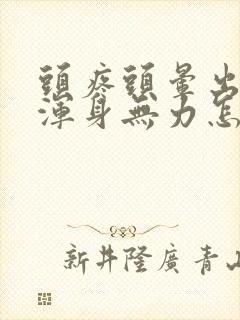 頭疼頭暈出
渾身無力怎
新井隆廣 青山